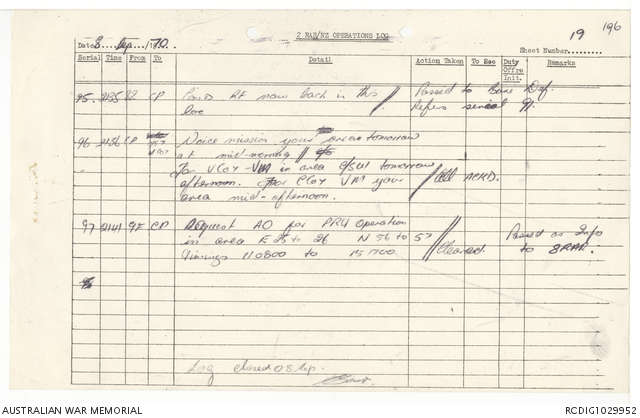 196
2 RAR/NZ OPERATIONS LOG
19
Date 8 Sep /70.
Sheet Number.........
Serial Time From To Detail Action Taken To Sec Duty Offrs Init. Remarks
95. 2135 22 CP RF now back in this Passed to Base Def.
loc Refers serial 91.
96 2136 CP Voice mission your area tomorrow
at mid-morning //
For V Coy - VM in area tomorrow
afternoon. For C Coy VM your All ACKD.
area mid-afternoon.
97 2141 9E CP Request AO for PRU operation Passed as Info
in area E 25 to 26 N 56 to 57 // Cleared. to 8RAR.
timings 110800 to 1700
Log closed 08 Sep.
AUSTRALIAN WAR MEMORIAL
RCDIG1029952